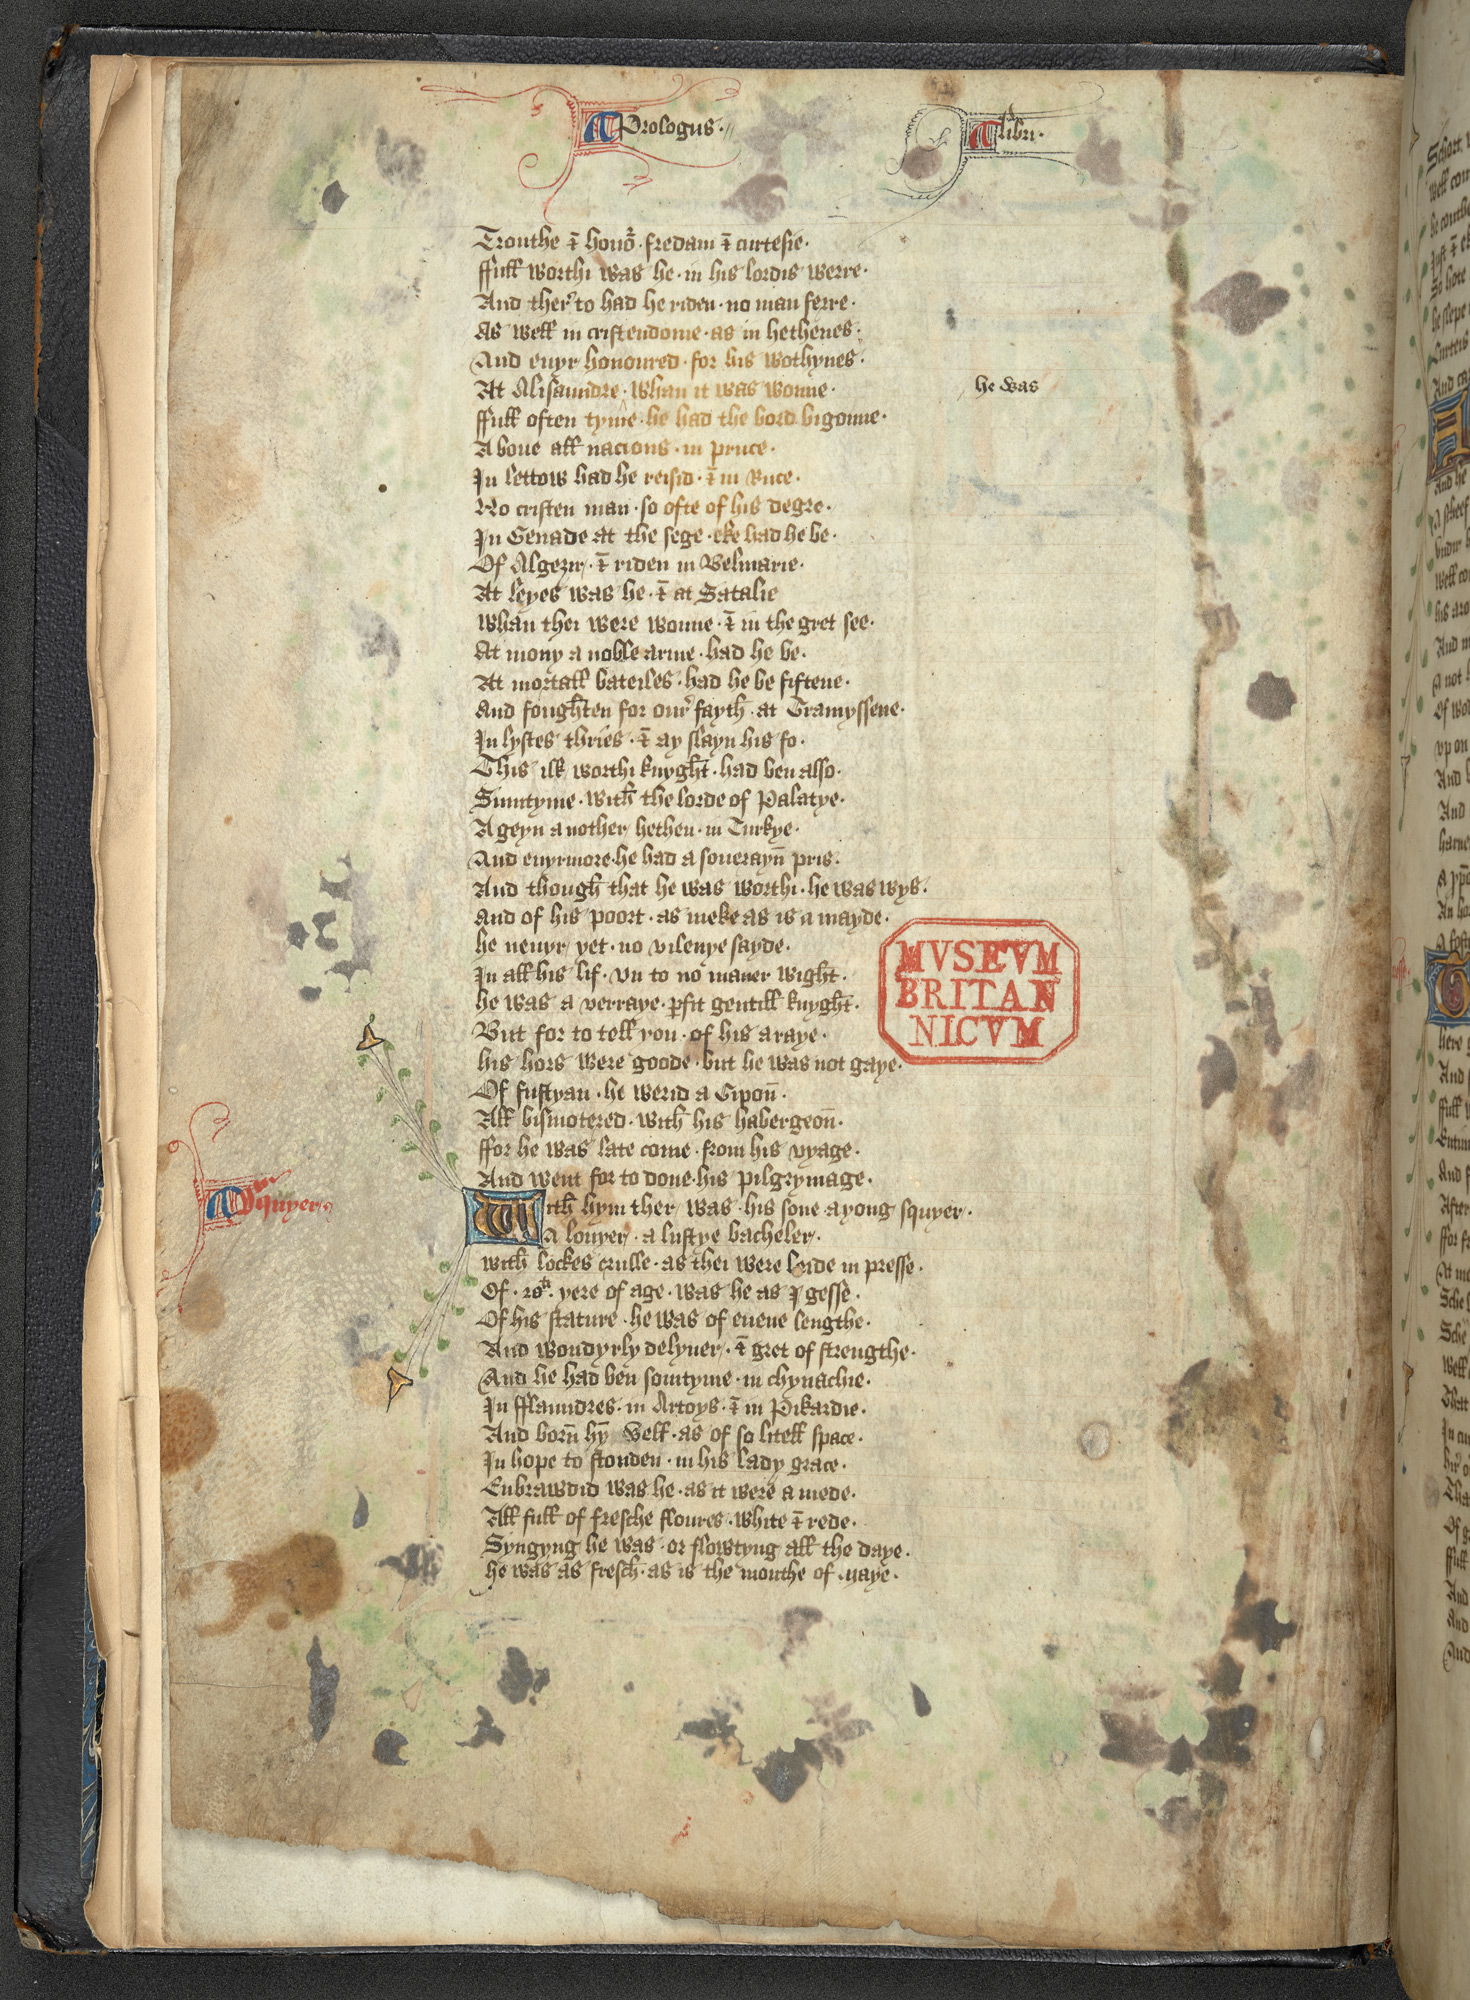 Prologus·
libri·
Trouthe & honor̛· fredam & curtesie·
ffull worthi was he· in his lordis werre·
And ther to had he riden· no man ferre·
As well in cristendome· as in hethenes·
And euyr honoured· for his wothynes·
At Alisaundre· whan it was wonne·
he was
ffull often tyme· he had the bord bigonne·
A boue all nacions· in pruce·
In lettow had he reisid· & in Ruce·
No cristen man· so ofte of his degre·
In Genade at the sege· eke had he be·
Of Algezir· & riden in Belmarie·
At leyes was he· & at Satalie
whan thei were wonne· & in the gret see·
At mony a noble arme· had he be·
At mortall bateiles· had he be fiftene·
And foughten for our fayth· at Tramyssene·
In lystes thries· & ay slayn his fo·
This ilk worthi knyght· had ben also·
Sumtyme· with the lorde of Palatye·
A geyn a nother hethen· in Turkye·
And euyrmore· he had a souerayn pris·
And though that he was worthi· he was wys·
And of his poort· as meke as is a mayde·
he neuyr yet· no vilenye sayde·
In all his lif· vn to no maner wight·
he was a verraye· pfit gentill knyght·
But for to tell you· of his araye·
his hors were goode· but he was not gaye·
Of fustyan· he werid a Gipon·
All bismotered· with his habergeon·
ffor he was late come· from his vyage·
And went for to done· his pilgrymage·
Squyer
With hym ther was· his sone a yong squyer·
A louyer· a lustye bacheler·
with lockes crulle· as thei were leide in presse·
Of· 20ti· yere of age· was he as I gesse·
Of his stature· he was of euene lengthe·
And wondyrly delyuer· & gret of strengthe·
And he had ben somtyme· in chyuachie·
In fflaundres· in Artoys· & in Pikardie·
And born hy well· as of so litell space·
In hope to stonden· in his lady grace·
Enbrawdid was he· as it were a mede·
All full of fresche floures· white & rede·
Syngyng he was· or flowtyng all the daye·
he was as fresch· as is the monthe of maye·
MVSEVM
BRITAN
NICVM